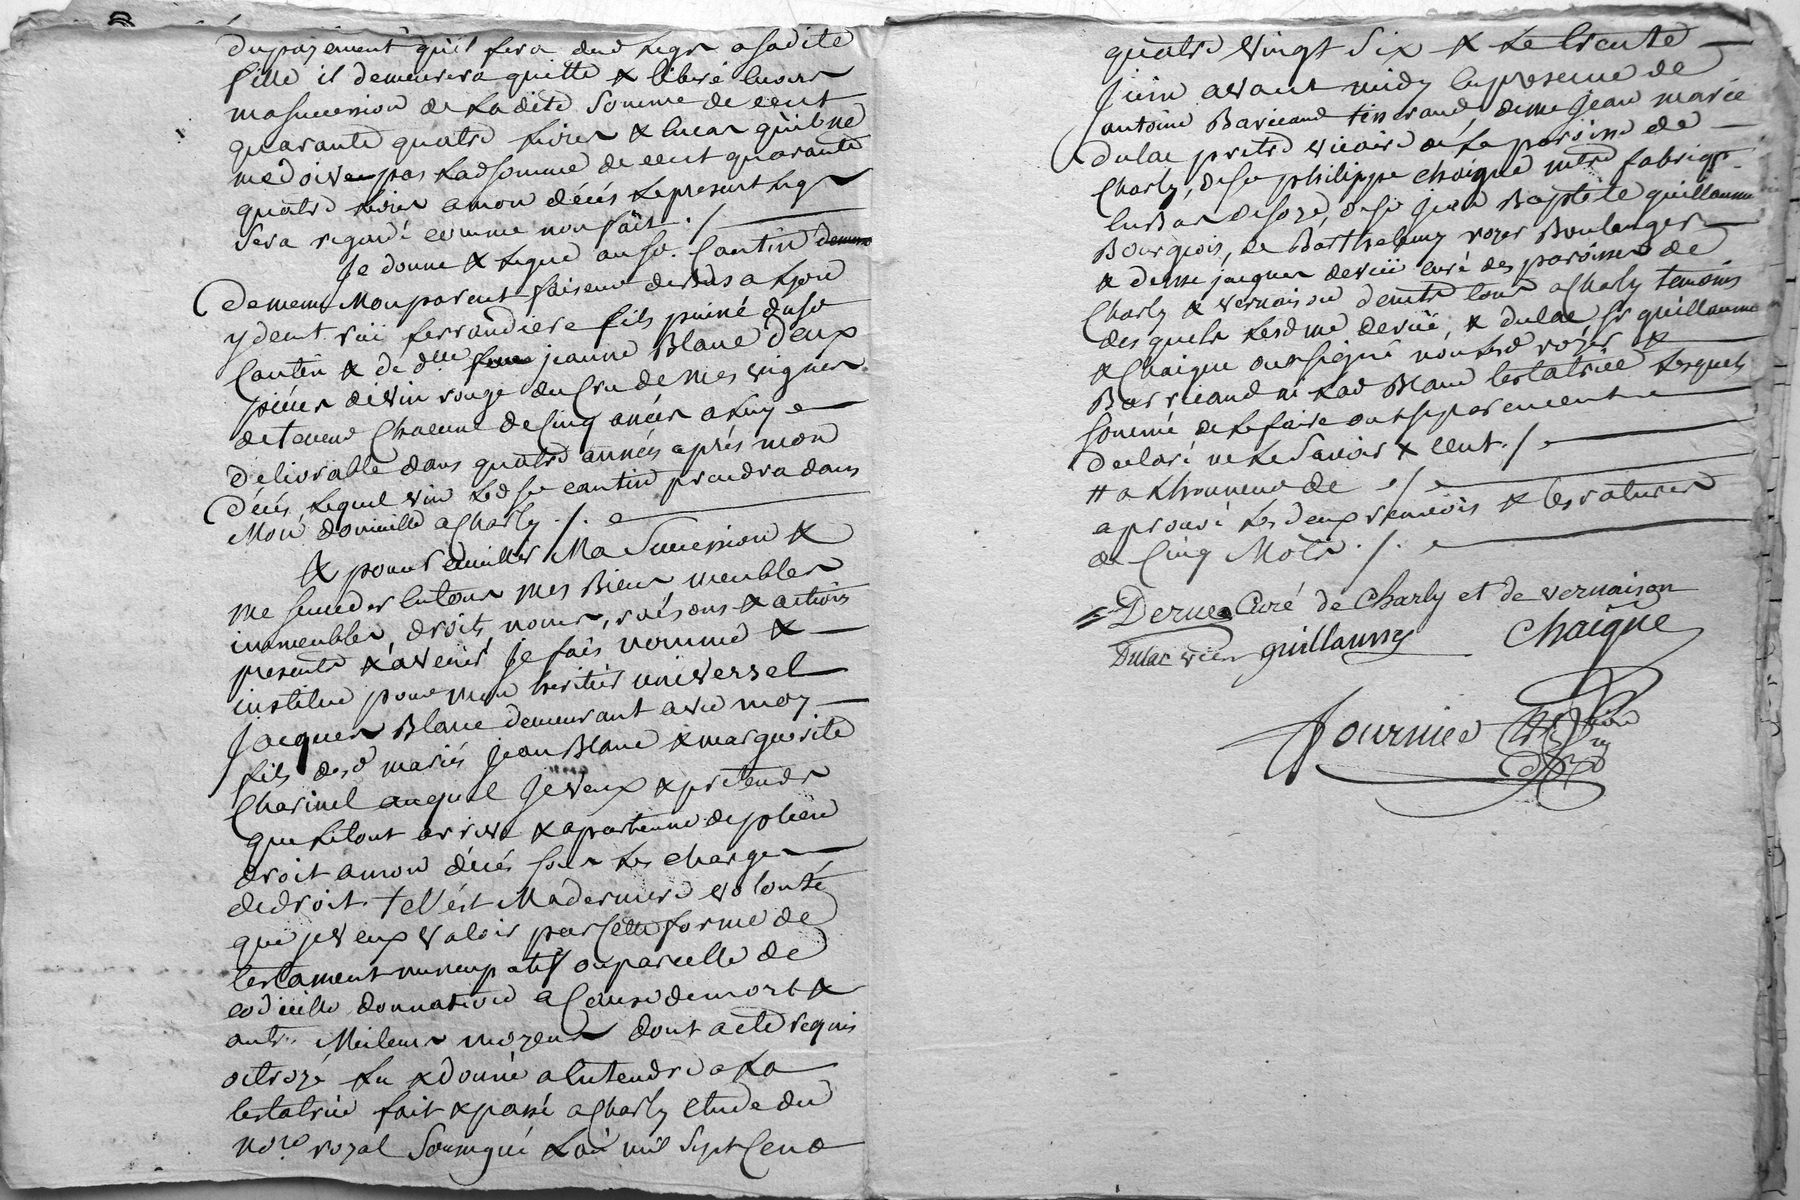 du payement qu'il fera dud legs a sadite
fille il demeurera quitte & libéré envers
ma succession de ladite somme de cent
quarante quatre livres & encas qu'il ne
me doive pas lad somme de cent quarante
quatre livres a mon décés le present legs
sera regardé comme non fait ./.
Je donne & legue au sr. Cantin
dememe Mon parent faiseur de bas a Lyon
y demt. rüe ferrandiere fils puiné dusr
Cantin & de dlle jeanne Blanc deux
pièces de vin rouge du Cru de mes vignes
de teneur Chacune de Cinq anées a luy
délivrable dans quatre années aprés mon
Décés, lequel vin led sr cantin prendra dans
Mon domicille a Charly ./.
& pour recuillir Ma Succession &
me succeder en tous Mes Biens meubles
immeubles, droits, noms, raisons & actions
presents & avenir Je fais nomme &
institue pour mon heritier universel
Jacques Blanc demeurant avec moy
fils desd mariés Jean Blanc & marguerite
Charinel auquel Je veux & pretends
que le tout arrive & apartienne de plein
droit a mon décés sous les charges
de droit. tell'est Ma derniere volonté
que je veux valoir par Cette forme de
testament nuncupatif ou par celle de
codicille donnation a Cause de mort &
autr. Meilleurs moyens dont acte requis
octroyé lu & donné a entendre a la
testatrice fait & passé a Charly etude du
nore. royal Soussigné L'an mil Sept Cent
quatre vingt Six & le trente
Juin avant midy En presence de
antoine Barricand tisserand, de me Jean marie
Dulac pretre vicaire de la paroisse de
Charly, de sr philippe chaigne mtre fabriqt.
En Bas de soye, de sr Jean Baptiste guillaume
Bourgeois, de Barthelemy royer Boulanger
& de me jacques derüe curé des paroisses de
Charly & vernaison demts. tous a Charly temoins
des quels lesd me derüe, & dulac sr guillaume
& Chaigne ont signé non led royer &
Barricand ni lad Blanc testatrice lesquels
sommé de le faire ont separement
declaré ne le Savoir & Cent. /.
# a L'honneur de ./.
aprouvé les deux renvois & les ratures
de Cinq Mots ./.
Derue Curé de Charly et de vernaison
Dulac vicre guillaume Chaigne
Fournier